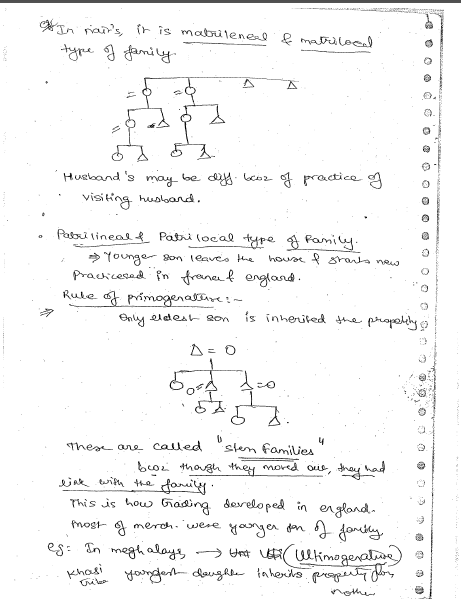 In nair's, it is matrilineal & matrilocal
type of family.
Husband's may be diff. bcoz of practice of
visiting husband.
• Patrilineal & Patrilocal type of Family.
⇒ Younger son leaves the house & starts new
Practicesed in france & england.
Rule of primogenature:-
⇒ Only eldest son is inherited the property
Δ = O
These are called "stem families"
bcoz though they moved out, they had
link with the family.
This is how trading developed in england.
most of merch. were younger son of family
eg: In meghalaya, → (Ultimogenature)
Khasi youngest daughter inherits property from
tribe mother